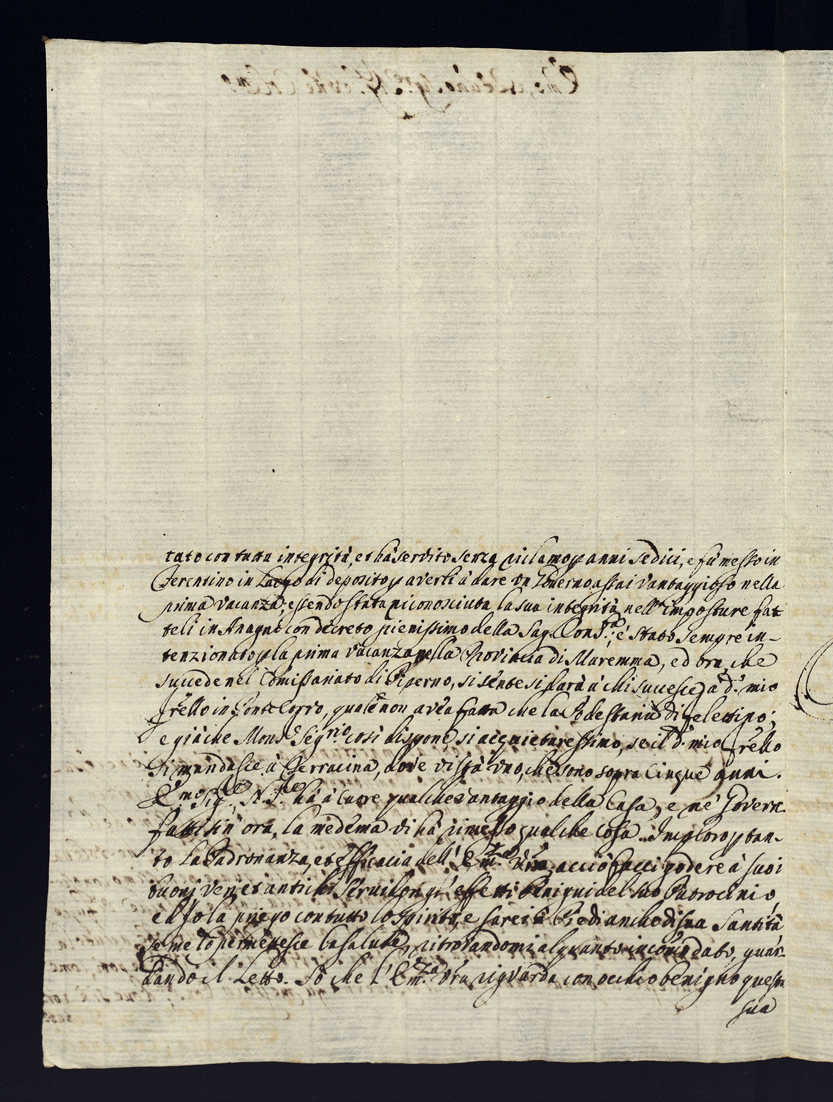 tato con tutta integrità, et hà servito senza riclamo p anni sedici, e fù messo in
Ferentino in luogo di deposito p averli à dare un Governo assai vantaggioso nella
prima vacanza, essendo stata riconosciuta la sua integrità nell'imposture fat-
teli in Anagni con decreto pienissimo della Sag. Con.ne, è stato sempre in-
tenzionato p la prima vacanza nella Provincia di Maremma, ed ora, che
succede nel Comissariato di Piperno, si sente si darà à chi succese a d.o mio
Frello in Ponte Corvo, quale non avea fatta che la Podestaria di
e già che Mons.r Seg.rio così dispone si acquietaressimo, se il d.o mio Frello
si mandasse à Terracina, dove vi stà uno, che sono sopra cinque anni.
E.mo Sig.re, N. S.re hà à cuore qualche vantaggio della Casa, e ne' Governi
fatti sin'ora, la medema di hà rimesso qualche cosa. Imploro p tan-
to la Padronanza, et efficacia dell'E.mza V.ra, acciò facci godere à suoi
buoni, veri et antichi Servitori gl'effetti benigni del suo Patrocinio,
ed io la priego con tutto lo spirito, e sarei à Piedi anche di sua Santità
se me lo permettesse la salute, ritrovandomi alquanto incomodato, guar-
dando il letto. Sò che l'E.mza V.ra riguarda con occhio benigno questa
sua